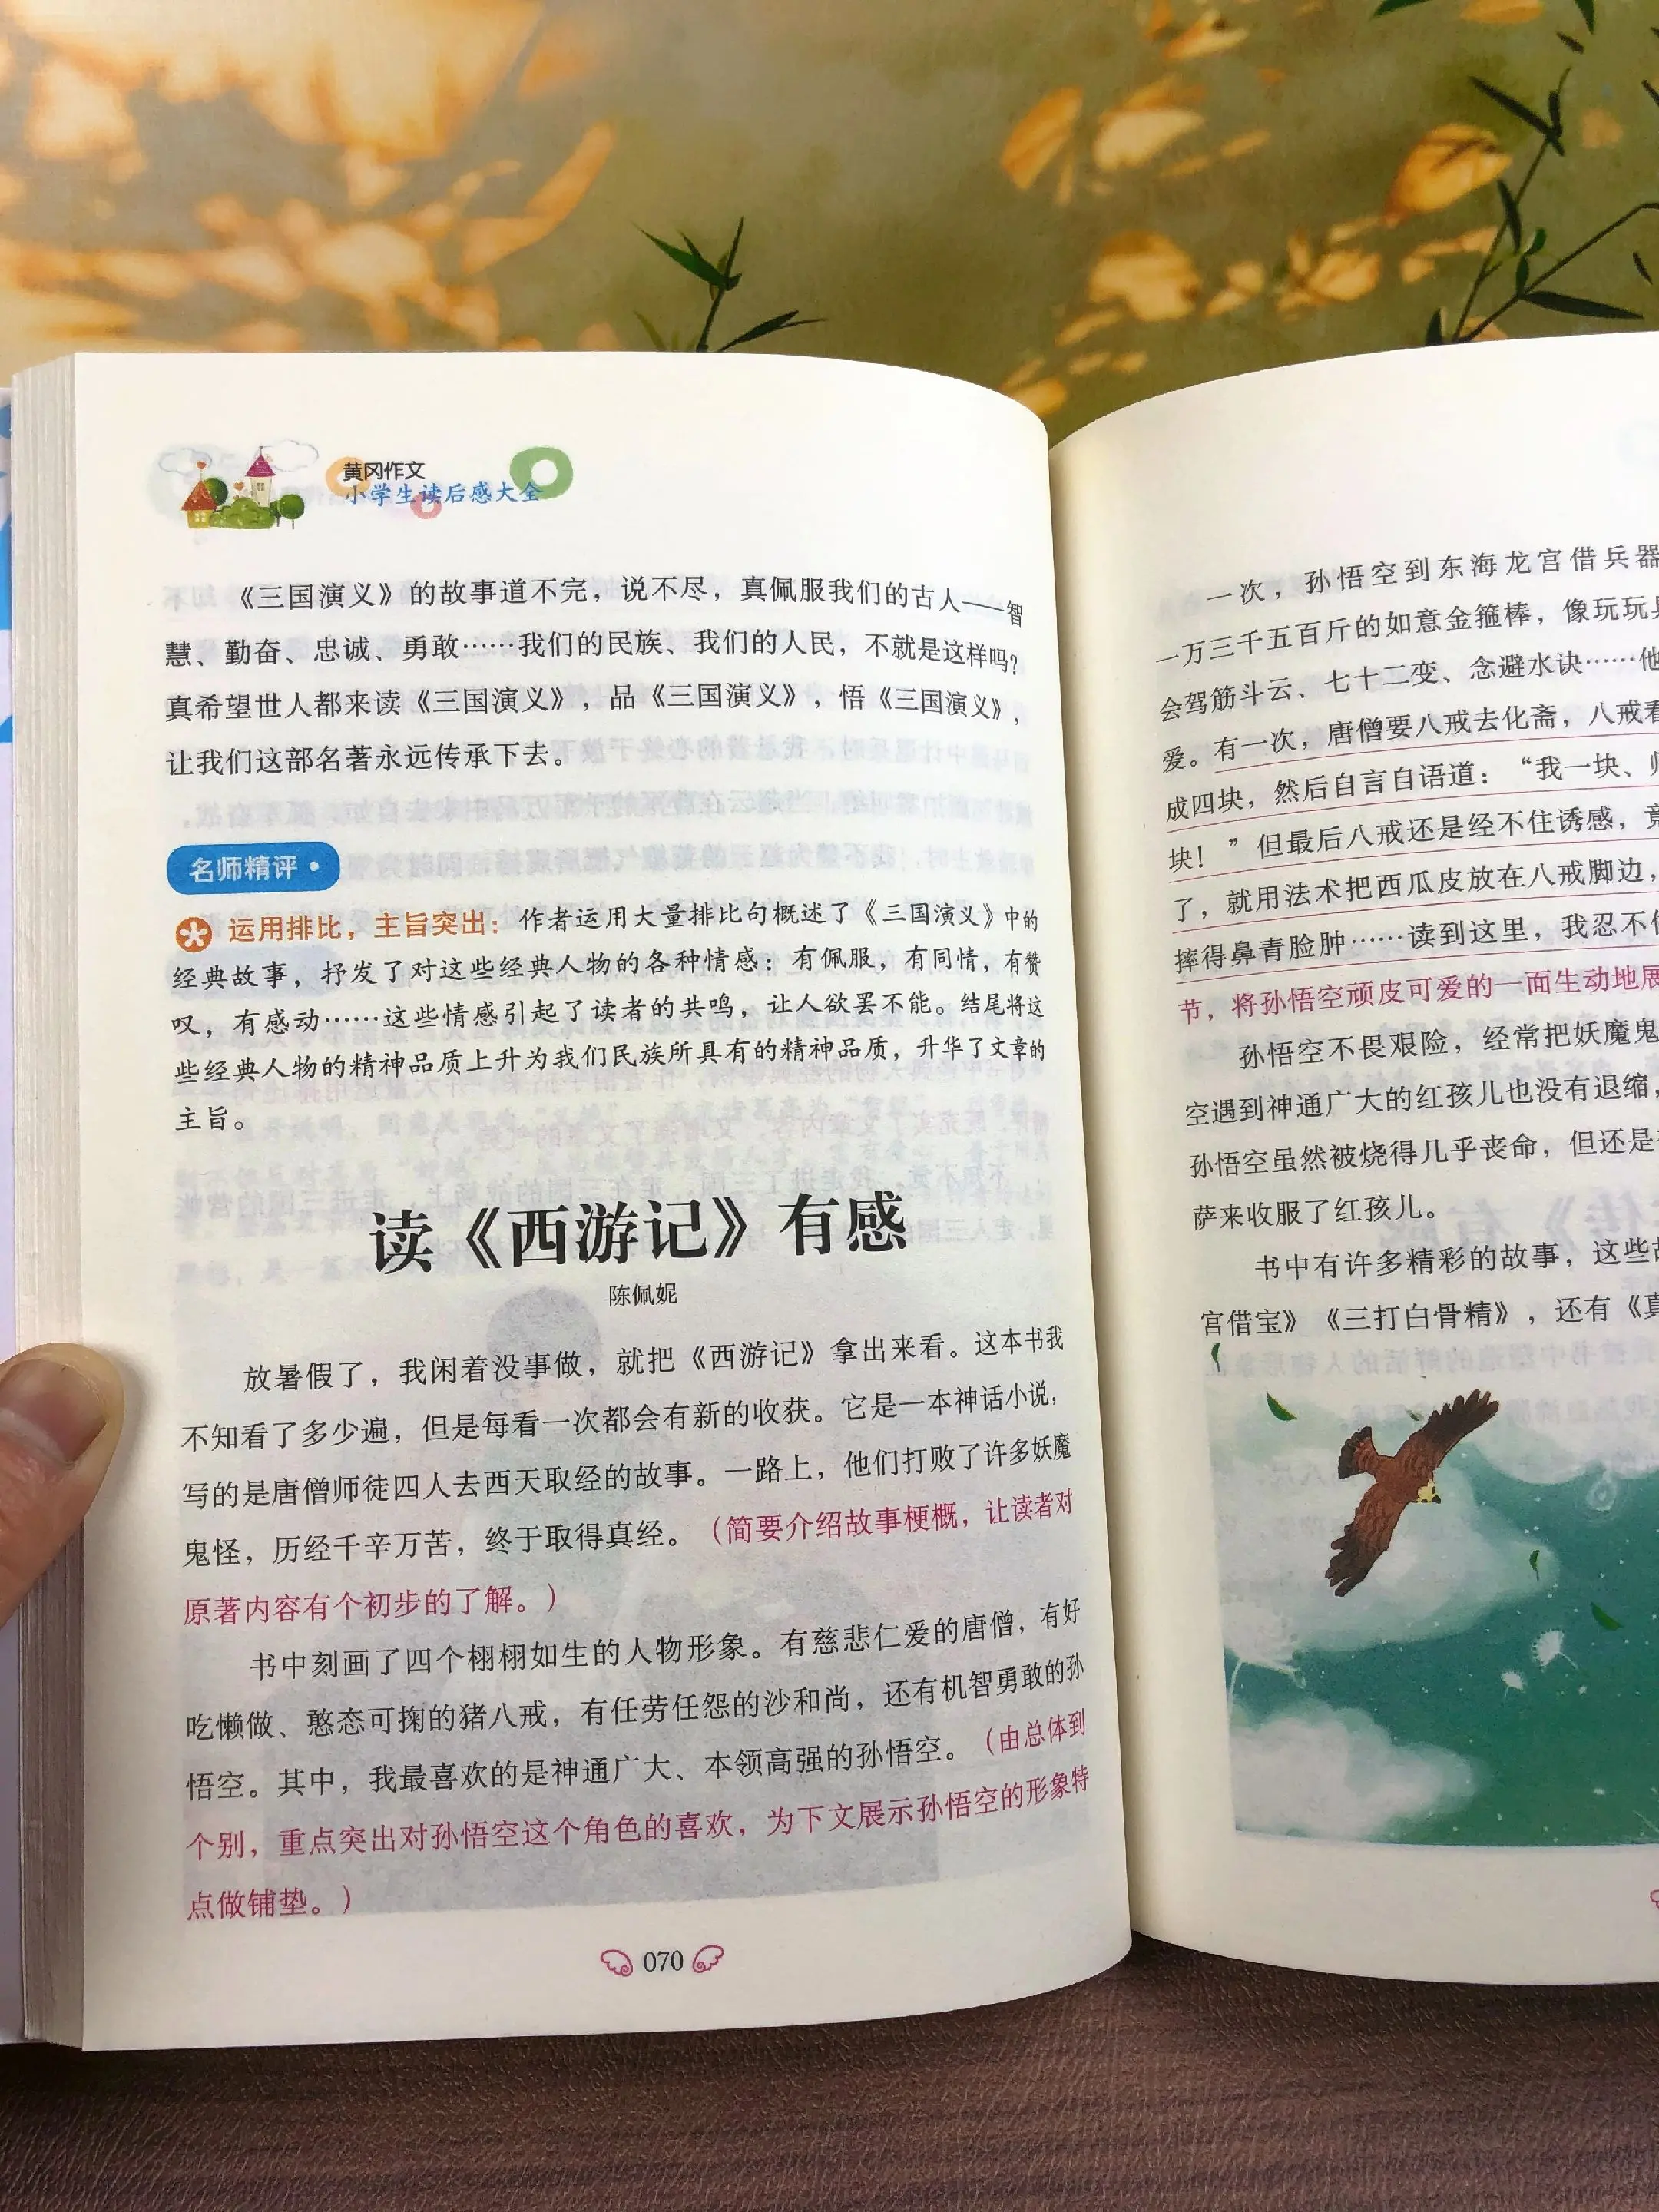 黄冈作文
小学生读后感大全
《三国演义》的故事道不完，说不尽，真佩服我们的古人——智
慧、勤奋、忠诚、勇敢……我们的民族、我们的人民，不就是这样吗？
真希望世人都来读《三国演义》，品《三国演义》，悟《三国演义》，
让我们这部名著永远传承下去。
名师精评·
运用排比，主旨突出：作者运用大量排比句概述了《三国演义》中的
经典故事，抒发了对这些经典人物的各种情感：有佩服，有同情，有赞
叹，有感动……这些情感引起了读者的共鸣，让人欲罢不能。结尾将这
些经典人物的精神品质上升为我们民族所具有的精神品质，升华了文章的
主旨。
读《西游记》有感
陈佩妮
放暑假了，我闲着没事做，就把《西游记》拿出来看。这本书我
不知看了多少遍，但是每看一次都会有新的收获。它是一本神话小说，
写的是唐僧师徒四人去西天取经的故事。一路上，他们打败了许多妖魔
鬼怪，历经千辛万苦，终于取得真经。（简要介绍故事梗概，让读者对
原著内容有个初步的了解。）
书中刻画了四个栩栩如生的人物形象。有慈悲仁爱的唐僧，有好
吃懒做、憨态可掬的猪八戒，有任劳任怨的沙和尚，还有机智勇敢的孙
悟空。其中，我最喜欢的是神通广大、本领高强的孙悟空。（由总体到
个别，重点突出对孙悟空这个角色的喜欢，为下文展示孙悟空的形象特
点做铺垫。）
070
一次，孙悟空到东海龙宫借兵器
一万三千五百斤的如意金箍棒，像玩玩
会驾筋斗云、七十二变、念避水诀……他
爱。有一次，唐僧要八戒去化斋，八戒看
成四块，然后自言自语道：“我一块、
块！”但最后八戒还是经不住诱惑，竟
了，就用法术把西瓜皮放在八戒脚边，
摔得鼻青脸肿……读到这里，我忍不
节，将孙悟空顽皮可爱的一面生动地展
孙悟空不畏艰险，经常把妖魔鬼
空遇到神通广大的红孩儿也没有退缩，
孙悟空虽然被烧得几乎丧命，但还是
萨来收服了红孩儿。
书中有许多精彩的故事，这些
宫借宝》《三打白骨精》，还有《真